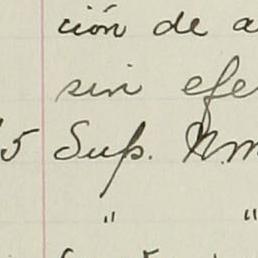 ción de a
sin efe
5 Sup. N.m
" "